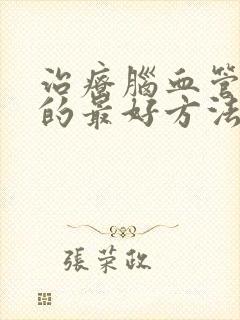 治療腦血管
的最好方法
張荣政